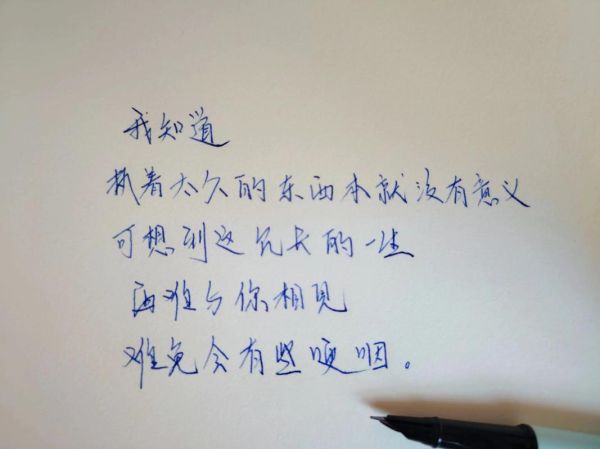 我知道
执着太久的东西本就没有意义
可想到这冗长的一生
再难与你相见
难免会有些哽咽。